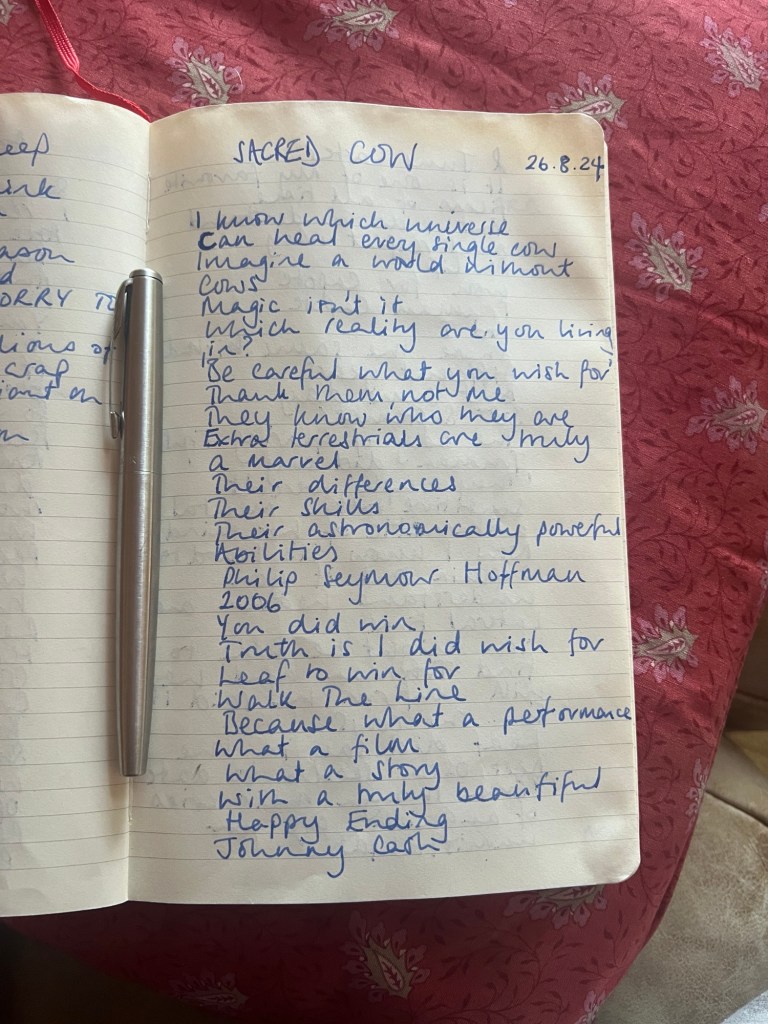 eep
ink
ason
d
ORRY TO
lions of
crap
iant on
m
SACRED COW
26.8.24
I know which universe
Can heal every single cow
Imagine a world without
cows
Magic isn't it
Which reality are you living
in?
Be careful what you wish for
Thank them not me
They know who they are
Extra terrestrials are truly
a marvel
Their differences
Their skills
Their astronomically powerful
Abilities
Philip Seymour Hoffman
2006
You did win
Truth is I did wish for
Leaf to win for
Walk The Line
Because what a performance
What a film
What a story
With a truly beautiful
Happy Ending
Johnny Cash